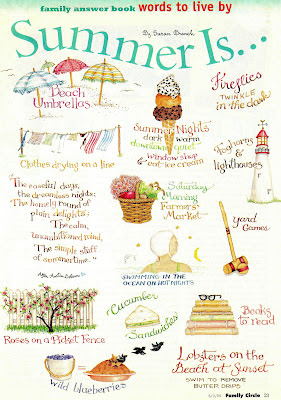 family answer book words to live by
Summer Is...
By Susan Branch
Beach
Umbrellas
Fireflies
TWINKLE
in the dark
Summer Nights
dark & warm
downtown quiet
window shop
& eat ice cream
Foghorns
&
lighthouses
Clothes drying on a line
"The careful days,
the dreamless nights;
The homely round of
plain delights;
The calm,
unambitioned mind,
The simple stuff
of summertime."
Saturday
Morning
Farmers'
Market
Yard
Games
SWIMMING IN THE
OCEAN ON HOT NIGHTS
Roses on a Picket Fence
Cucumber
Sandwiches
Books
to read
wild blueberries
Lobsters on the
Beach at Sunset
SWIM TO REMOVE
BUTTER DRIPS
Family Circle